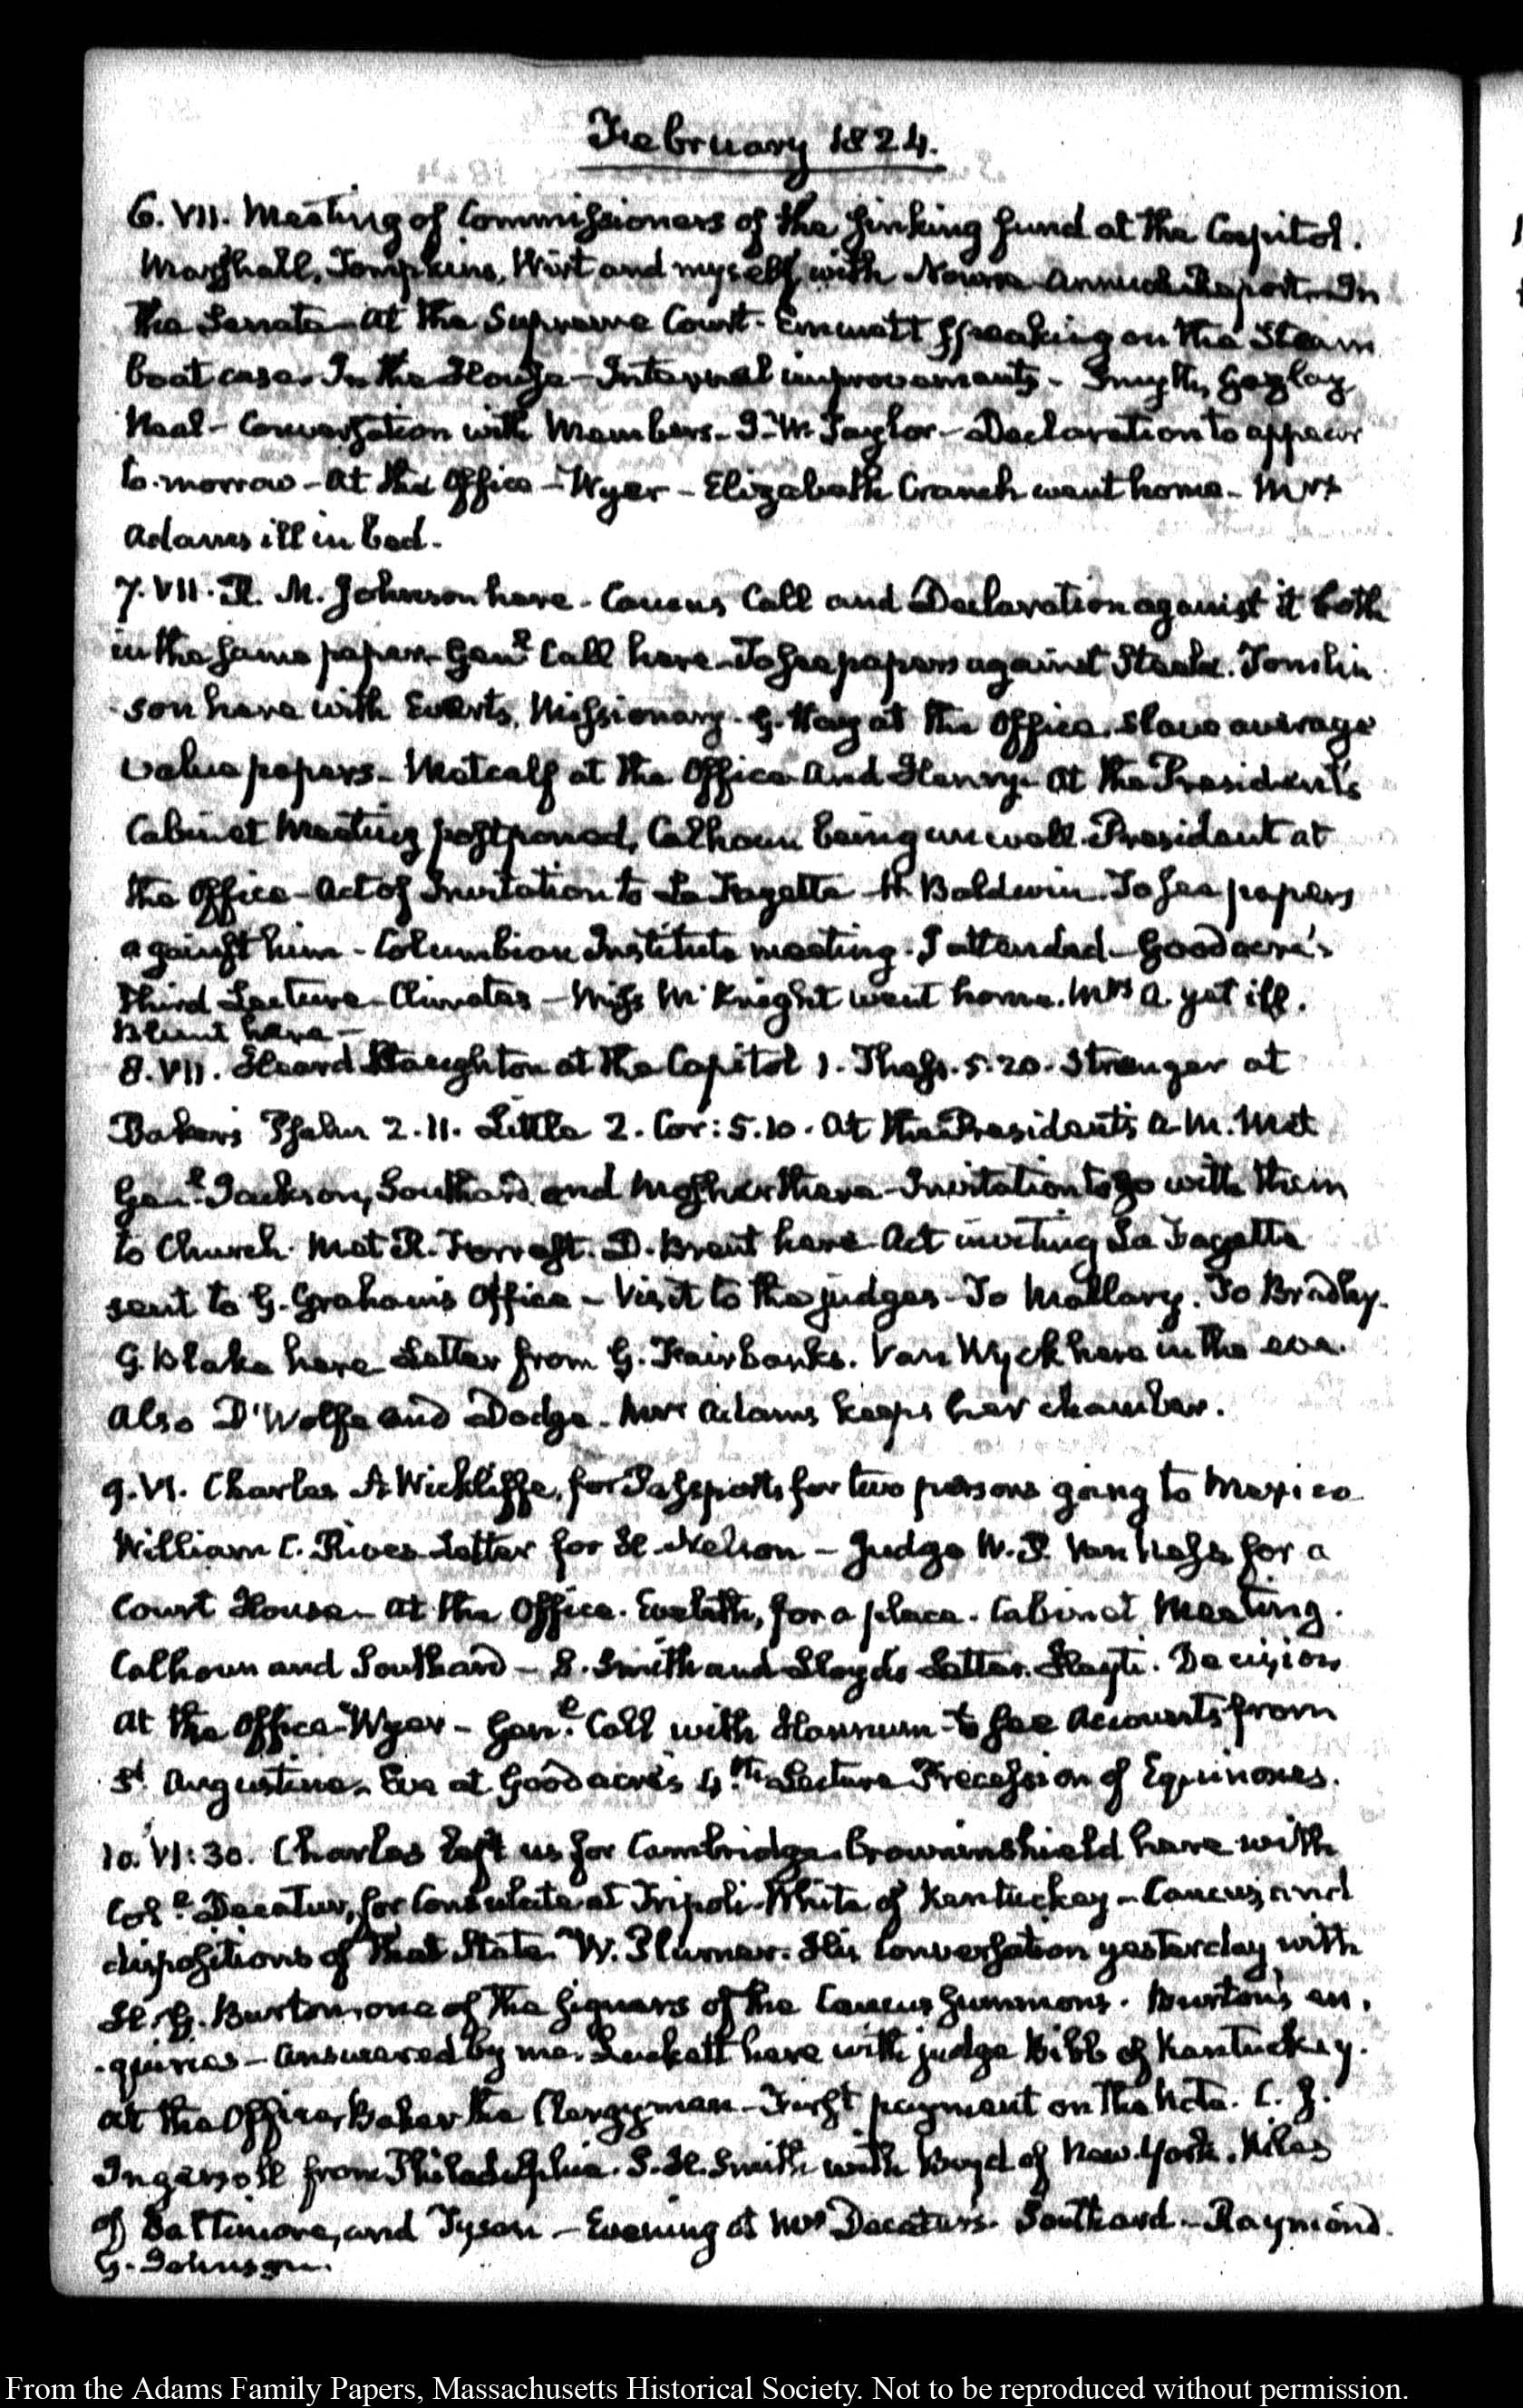 February 1824.
6. VII. Meeting of Commissioners of the sinking fund at the Capitol.
Marshall, Tompkins, Wirt and myself, with Nourse Annual Report. In
the Senate - At the Supreme Court - Emmett speaking on the Steam
boat case. In the House - Internal improvements - Smyth, Gazlay
Neal - Conversation with Members - J. W. Taylor - Declaration to appear
to-morrow - At the Office - Wyer - Elizabeth Cranch went home - Mrs
Adams ill in bed.
7. VII. R. M. Johnson here - Caucus Call and Declaration against it both
in the same paper. Genl. Call here - To see papers against Steele. Tomlin
son here with Evarts, Missionary. G. Hay at the Office. Slave average
value papers - Metcalf at the Office and Henry. At the President's
Cabinet Meeting postponed, Calhoun being unwell. President at
the Office - Act of Invitation to La Fayette - H. Baldwin. To see papers
against him - Columbian Institute meeting. I attended - Goodacre's
third Lecture - Climates - Miss McKnight went home. Mrs A. yet ill.
Blunt here -
8. VII. Heard Staughton at the Capitol 1. Thess. 5. 20. Stranger at
Baker's Psalm 2. 11. Little 2. Cor: 5. 10. At the President's A.M. Met
Genl. Jackson, Southard and Mosher there - Invitation to go with them
to Church. Met R. Forrest. D. Brent here - Act inviting La Fayette
sent to G. Graham's Office - Visit to the judges - To Mallary. To Bradley.
G. Blake here - Letter from G. Fairbanks. Van Wyck here in the eve.
Also D'Wolfe and Dodge. Mrs Adams keeps her chamber.
9. VI. Charles A Wickliffe, for Passports for two persons going to Mexico
William C. Rives - Letter for H. Nelson - Judge W. P. Van Ness for a
Court House - At the Office. Eveleth, for a place. Cabinet Meeting.
Calhoun and Southard - S. Smith and Lloyd's Letter. Hayti. Decision
At the Office - Wyer - Genl. Call with Hannum to see Accounts from
St. Augustine. Eve at Goodacre's 4th Lecture Precession of Equinoxes.
10. VI:30. Charles left us for Cambridge. Crowninshield here with
Col. Decatur, for Consulate at Tripoli. White of Kentuckey - Caucus and
dispositions of that State. W. Plumer. His Conversation yesterday with
H. G. Burton, one of the signers of the Caucus Summons. Burton's en-
-quiries - Answered by me. Luckett here with judge Bibb of Kentuckey.
At the Office, Baker the Clergyman - First payment on the Note. C. J.
Ingersoll from Philadelphia. S. H. Smith with Boyd of New-York. Niles
of Baltimore, and Tyson - Evening at Mrs Decatur's. Southard - Raymond.
G. Johnson.
From the Adams Family Papers, Massachusetts Historical Society. Not to be reproduced without permission.